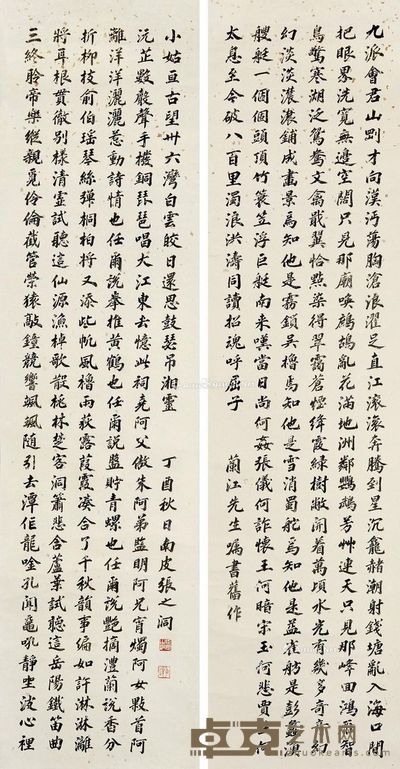 九派會君山剛才向漢沔蕩胸滄浪濯足直江滾滾奔騰到星沉龕赭潮射錢塘亂入海口間
把眼界洗寬無邊空闊只見那廟喚鷓鴣亂花滿地洲鄰鸚鵡芳艸連天只見那峰回鴻智
鳥驚寒湖泛鴛鴦文禽戢翼恰點染得翠靄蒼煙絳霞綠樹敞開着萬頃水光有幾多奇奇幻
幻淡淡濃濃鋪成畫景焉知他是霧鎖吳檣焉知他是雪消蜀舵焉知他是益雀舫是彭蠡漁
艘艇一個個頭頂竹簑笠浮巨艇南來嘆當日尚何奸張儀何詐懷王何暗宋玉何悲賈生何
太息至今破八百里濁浪洪濤同讀招魂呼屈子
蘭江先生囑書舊作
三終聆帝樂縱觀覓伶倫截管榮猿敲鏡競響颯颯隨引去潭作龍唫孔聞鼉吼靜坐波心裡
將耳根貫徹別樣清靈試聽這仙源漁棹歌散桃林楚客洞簫悲含蘆葉試聽這岳陽鐵笛曲
折柳枝俞伯瑤琴絲彈桐柏將又添些帆風櫓雨荻露葭霞湊合了千秋韻事偏如許淋淋漓
離洋洋灑灑惹動詩情也任爾說拳椎黃鶴也任爾說盤貯青螺也任爾說艷摘澧蘭說香分
沅芷數聲聲手樓銅琵琶唱大江東去憶此祠堯阿父傲朱阿弟監明阿兄宵燭阿女敤首阿
小姑亘古望卅六灣白雲皎日還思鼓瑟吊湘靈
丁酉秋日南皮張之洞